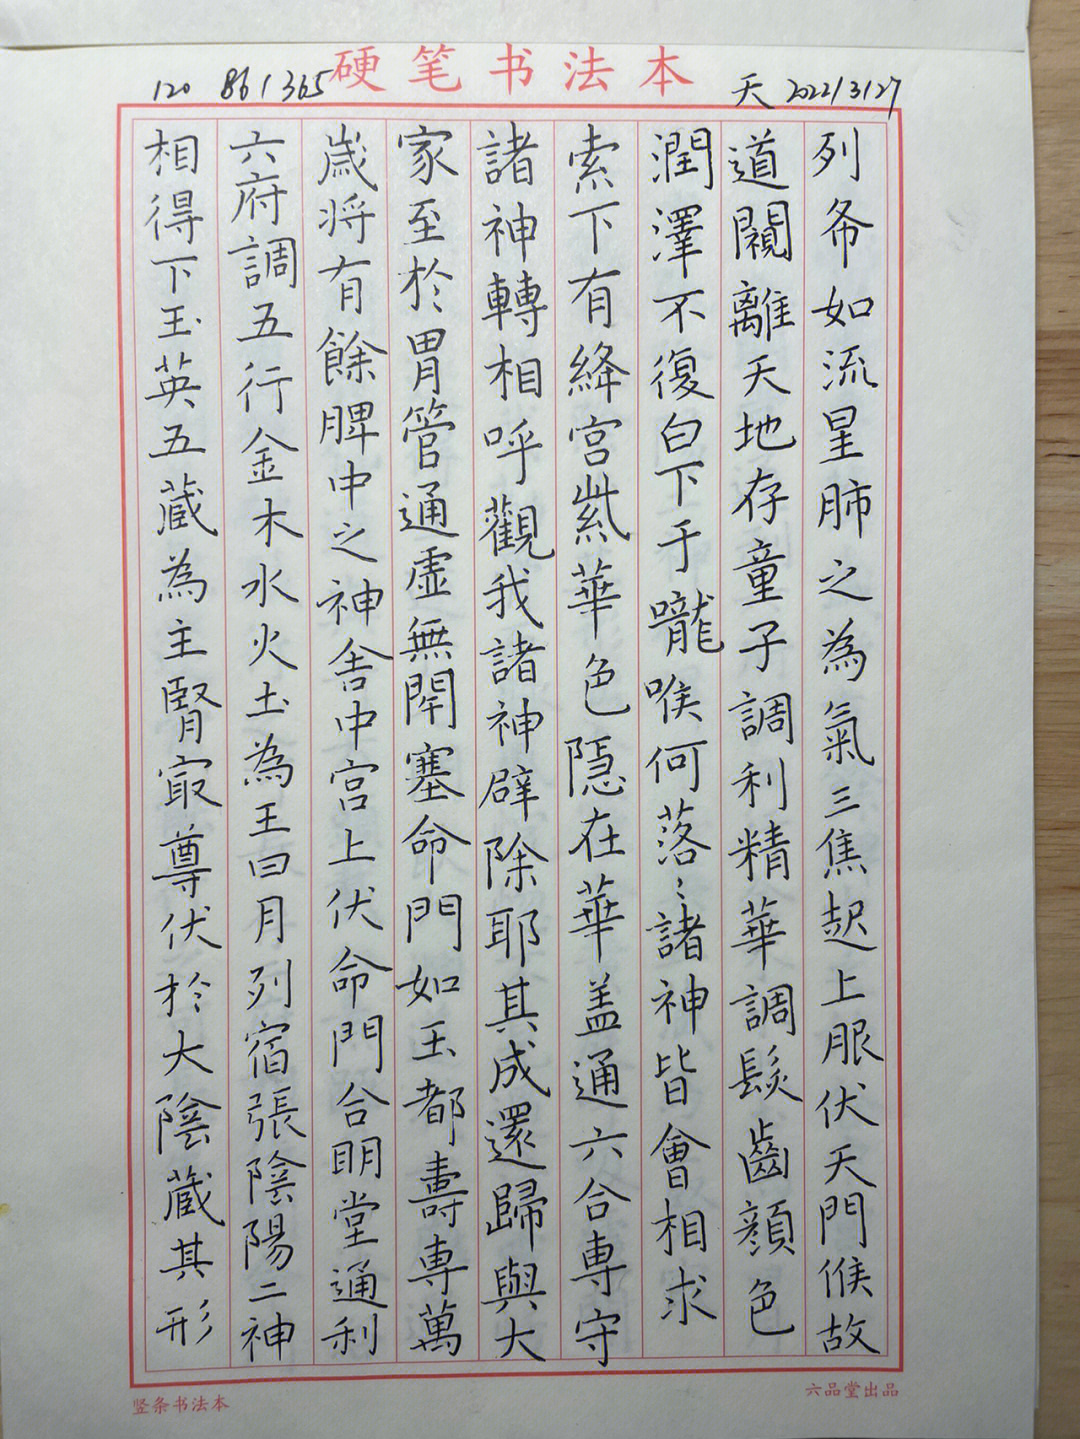 硬笔书法本
120 861365
天 2022/3/27
列布如流星肺之為氣三焦起上服伏天門候故
道闚離天地存童子調利精華調髮齒顔色
潤澤不復白下于嚨喉何落〻諸神皆會相求
索下有絳宫紫華色隱在華盖通六合専守
諸神轉相呼觀我諸神辟除耶其成還歸與大
家至於胃管通虚無閉塞命門如玉都壽専萬
歳将有餘脾中之神舍中宫上伏命門合明堂通利
六府調五行金木水火土為王曰月列宿張陰陽二神
相得下玉英五藏為主腎㝡尊伏於大陰藏其形
竖条书法本
六品堂出品